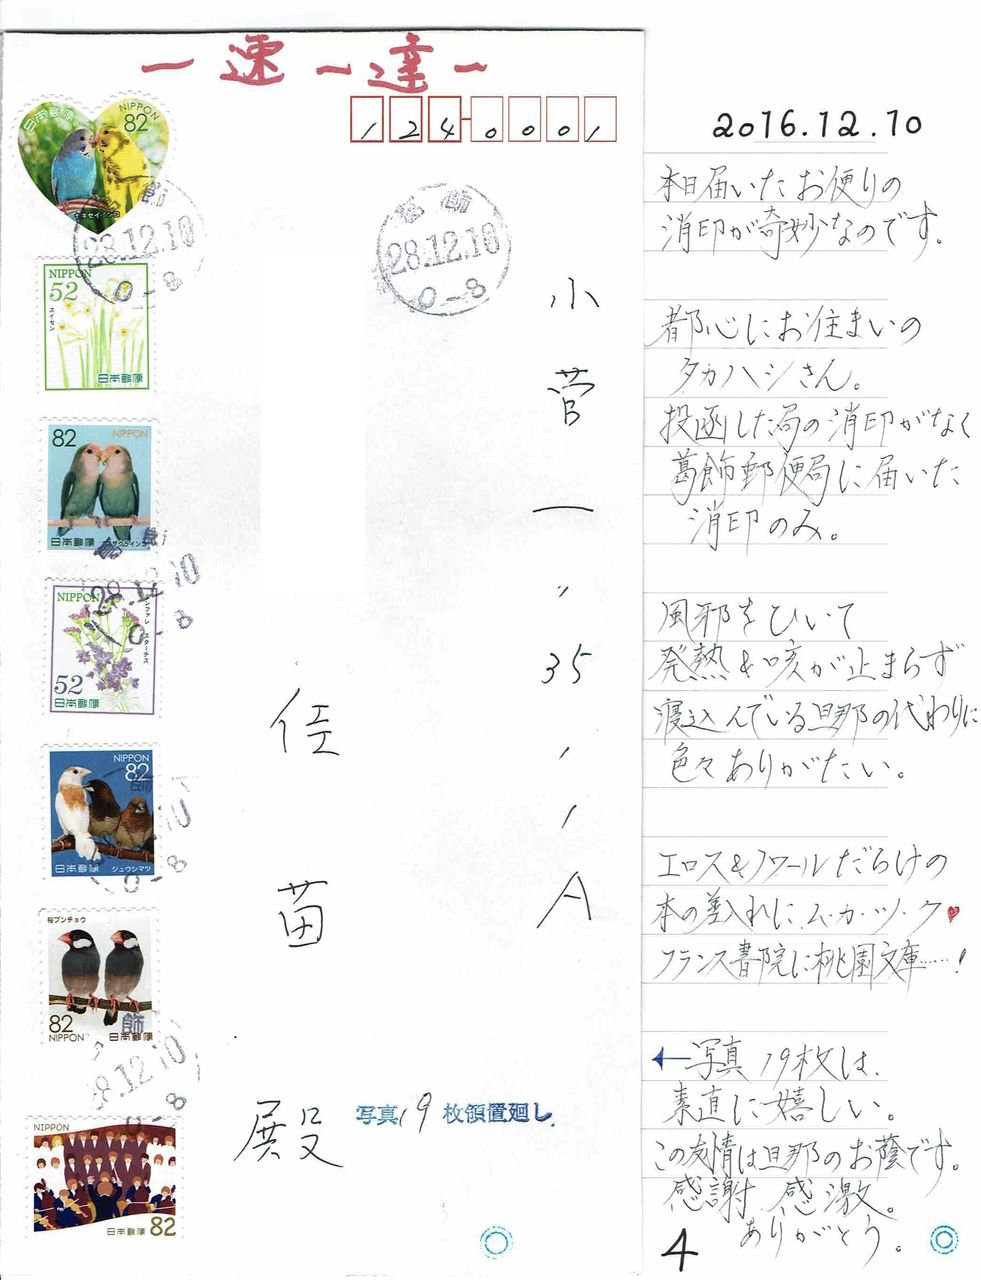 一速一達一
124-0001
日本郵便
NIPPON
82
セキセイインコ
葛飾
28.12.10
0-8
葛飾
28.12.10
0-8
NIPPON
52
スイセン
日本郵便
82
NIPPON
日本郵便
葛飾
28.12.10
0-8
NIPPON
スターチス
52
日本郵便
NIPPON
82
日本郵便
ジュウシマツ
飾
10
0-8
桜ブンチョウ
82
NIPPON
日本郵便
飾
8.12.10
0-8
NIPPON
日本郵便 82
小菅一、35、1A
佳苗
殿
写真19枚領置廻し
2016.12.10
本日届いたお便りの
消印が奇妙なのです。
都心にお住まいの
タカハシさん。
投函した局の消印がなく
葛飾郵便局に届いた
消印のみ。
風邪をひいて
発熱&咳が止まらず
寝込んでいる旦那の代わりに
色々ありがたい。
エロス&ノワールだらけの
本の差入れに、ム・カ・ツ・ク♥
フランス書院に桃園文庫……!
←写真19枚は、
素直に嬉しい。
この友情は旦那のお蔭です。
感謝 感激。
ありがとう。
4